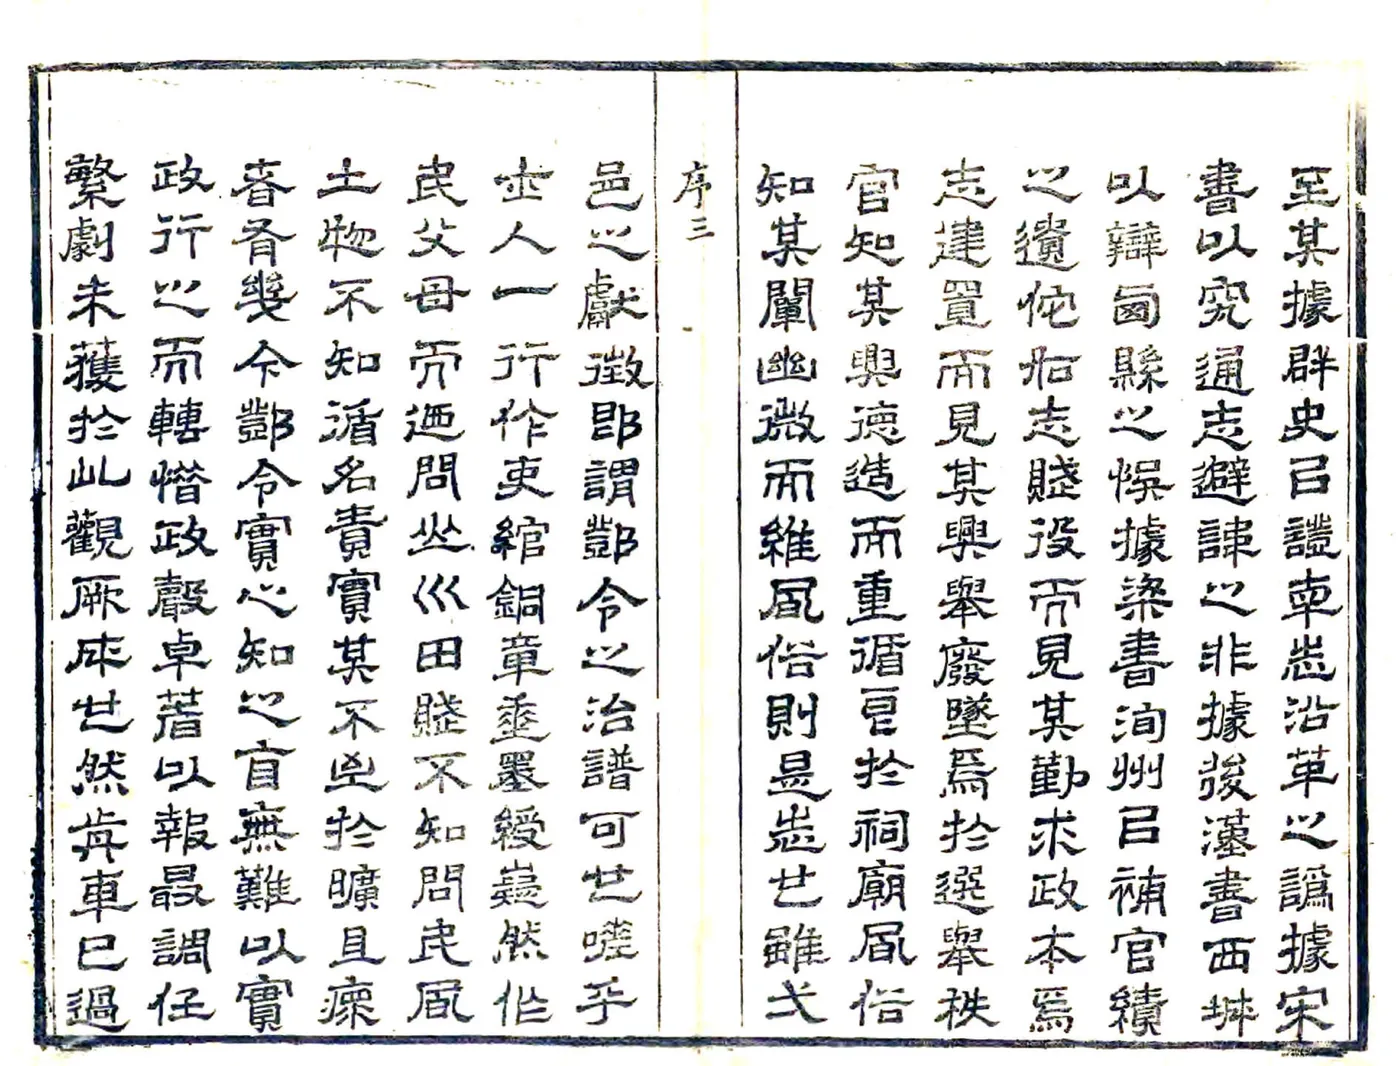 至其據群史以證車志沿革之譌據宋
書以究通志避諱之非據後漢書西域
以辯圅縣之悞據梁書洵州以補官續
之遺佗如志賤役而見其勤求政本焉
志建置而見其興舉廢墜焉於選舉秩
官知其興德造而重循良於祠廟風俗
知其闡幽微而維風俗則是志也雖弌
序三
邑之獻徵即謂酆令之治譜可也嗟乎
士人一行作吏綰銅章垂墨綬嶷然作
民父母而迺問坐巛田賤不知問民風
土物不知循名責實其不凶於曠且瘝
者有幾今酆令實心知之盲無難以實
政行之而轉惜政聲卓著以報最調任
繁劇未獲於此觀厥成也然前車已過